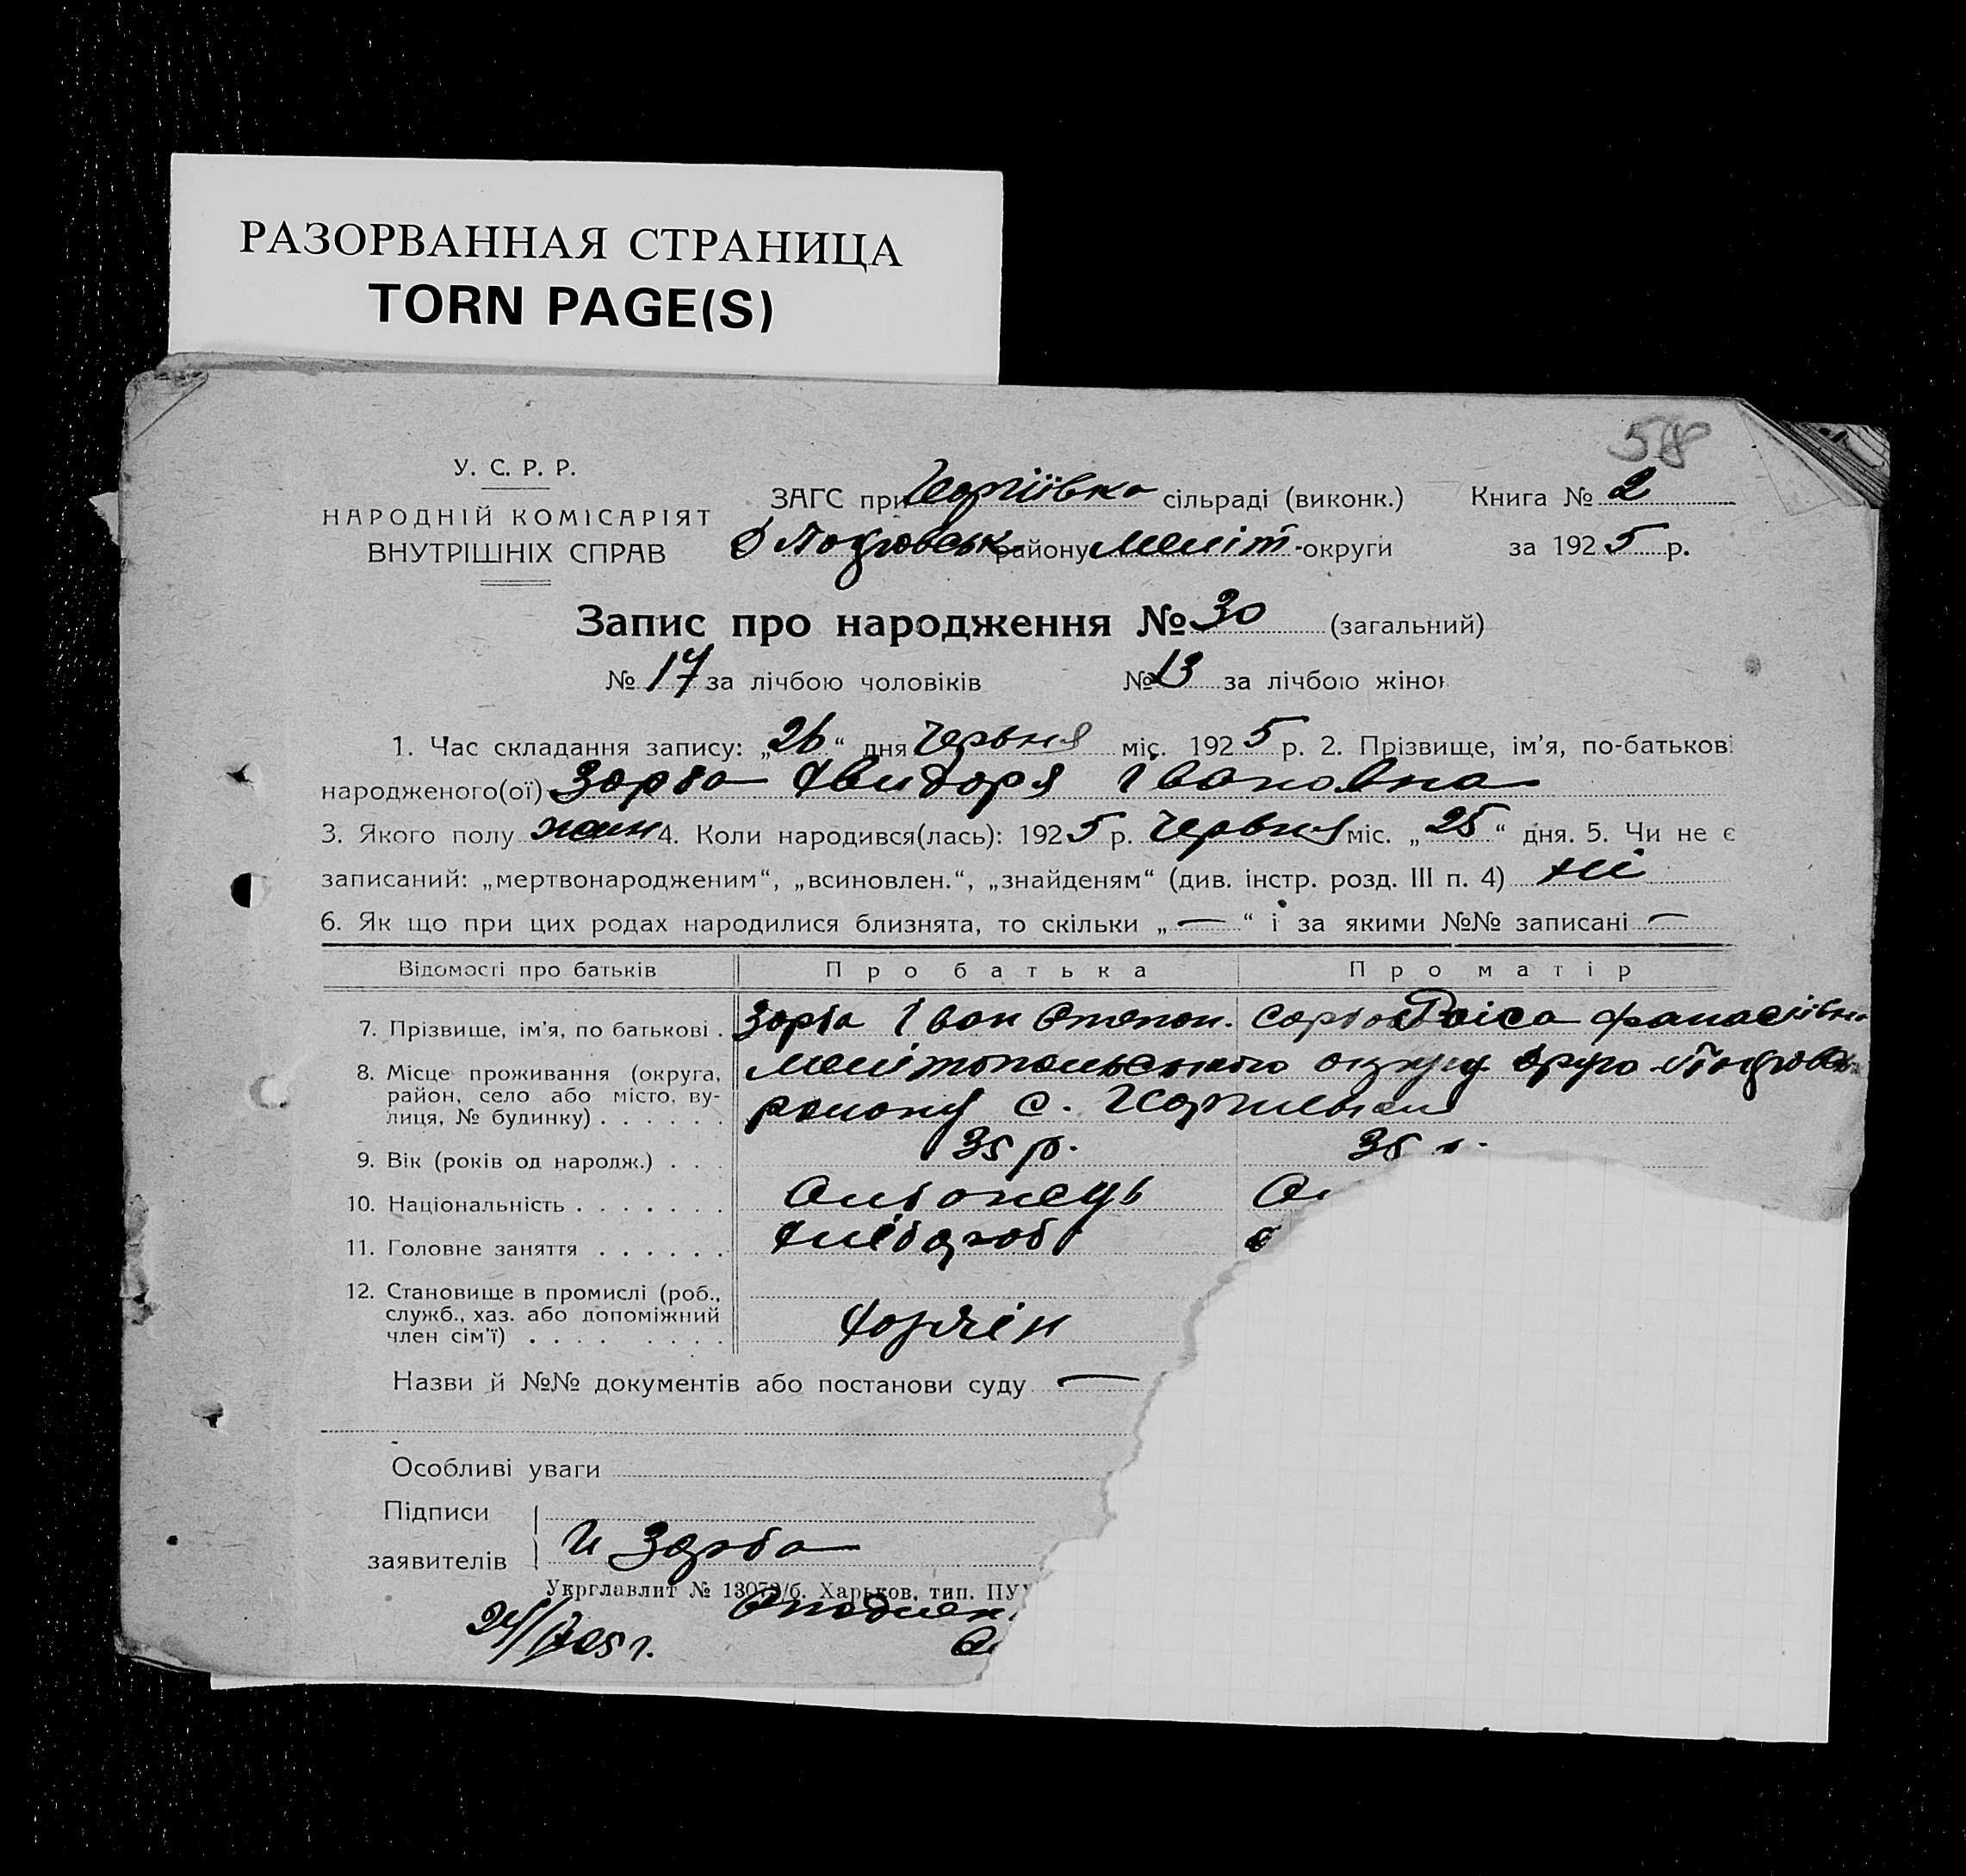 РАЗОРВАННАЯ СТРАНИЦА
TORN PAGE(S)
58
У. С. Р. Р.
НАРОДНІЙ КОМІСАРІЯТ
ВНУТРІШНІХ СПРАВ
ЗАГС при Георгіївка сільраді (виконк.) Книга № 2
району Меліт-округи за 1925 р.
Запис про народження № 30 (загальний)
№ 17 за лічбою чоловіків № 13 за лічбою жінок
1. Час складання запису: „26“ дня Червня міс. 1925 р. 2. Прізвище, ім’я, по-батькові
народженого(ої) Зорба Івановна
3. Якого полу жін 4. Коли народився(лась): 1925 р. Червня міс. „25“ дня. 5. Чи не є
записаний: „мертвонародженим“, „всиновлен.“, „знайденям“ (див. інстр. розд. III п. 4) ні
6. Як що при цих родах народилися близнята, то скільки „—“ і за якими №№ записані —
Відомості про батьків Про батька Про матір
7. Прізвище, ім’я, по батькові . Зорба Іван Степан. Раіса
8. Місце проживання (округа, Мелітопольського округу
район, село або місто, ву- району с.
лиця, № будинку) . . . . . .
9. Вік (років од народж.) . . . 35 р. 35
10. Національність . . . . . . . Олбонець
11. Головне заняття . . . . . . хлібороб
12. Становище в промислі (роб.,
служб., хаз. або допоміжний
член сім’ї) . . . . . . . .
Назви й №№ документів або постанови суду —
Особливі уваги
Підписи
заявителів И Зорба
Укрглавлит № 13073/б. Харьков, тип. ПУ